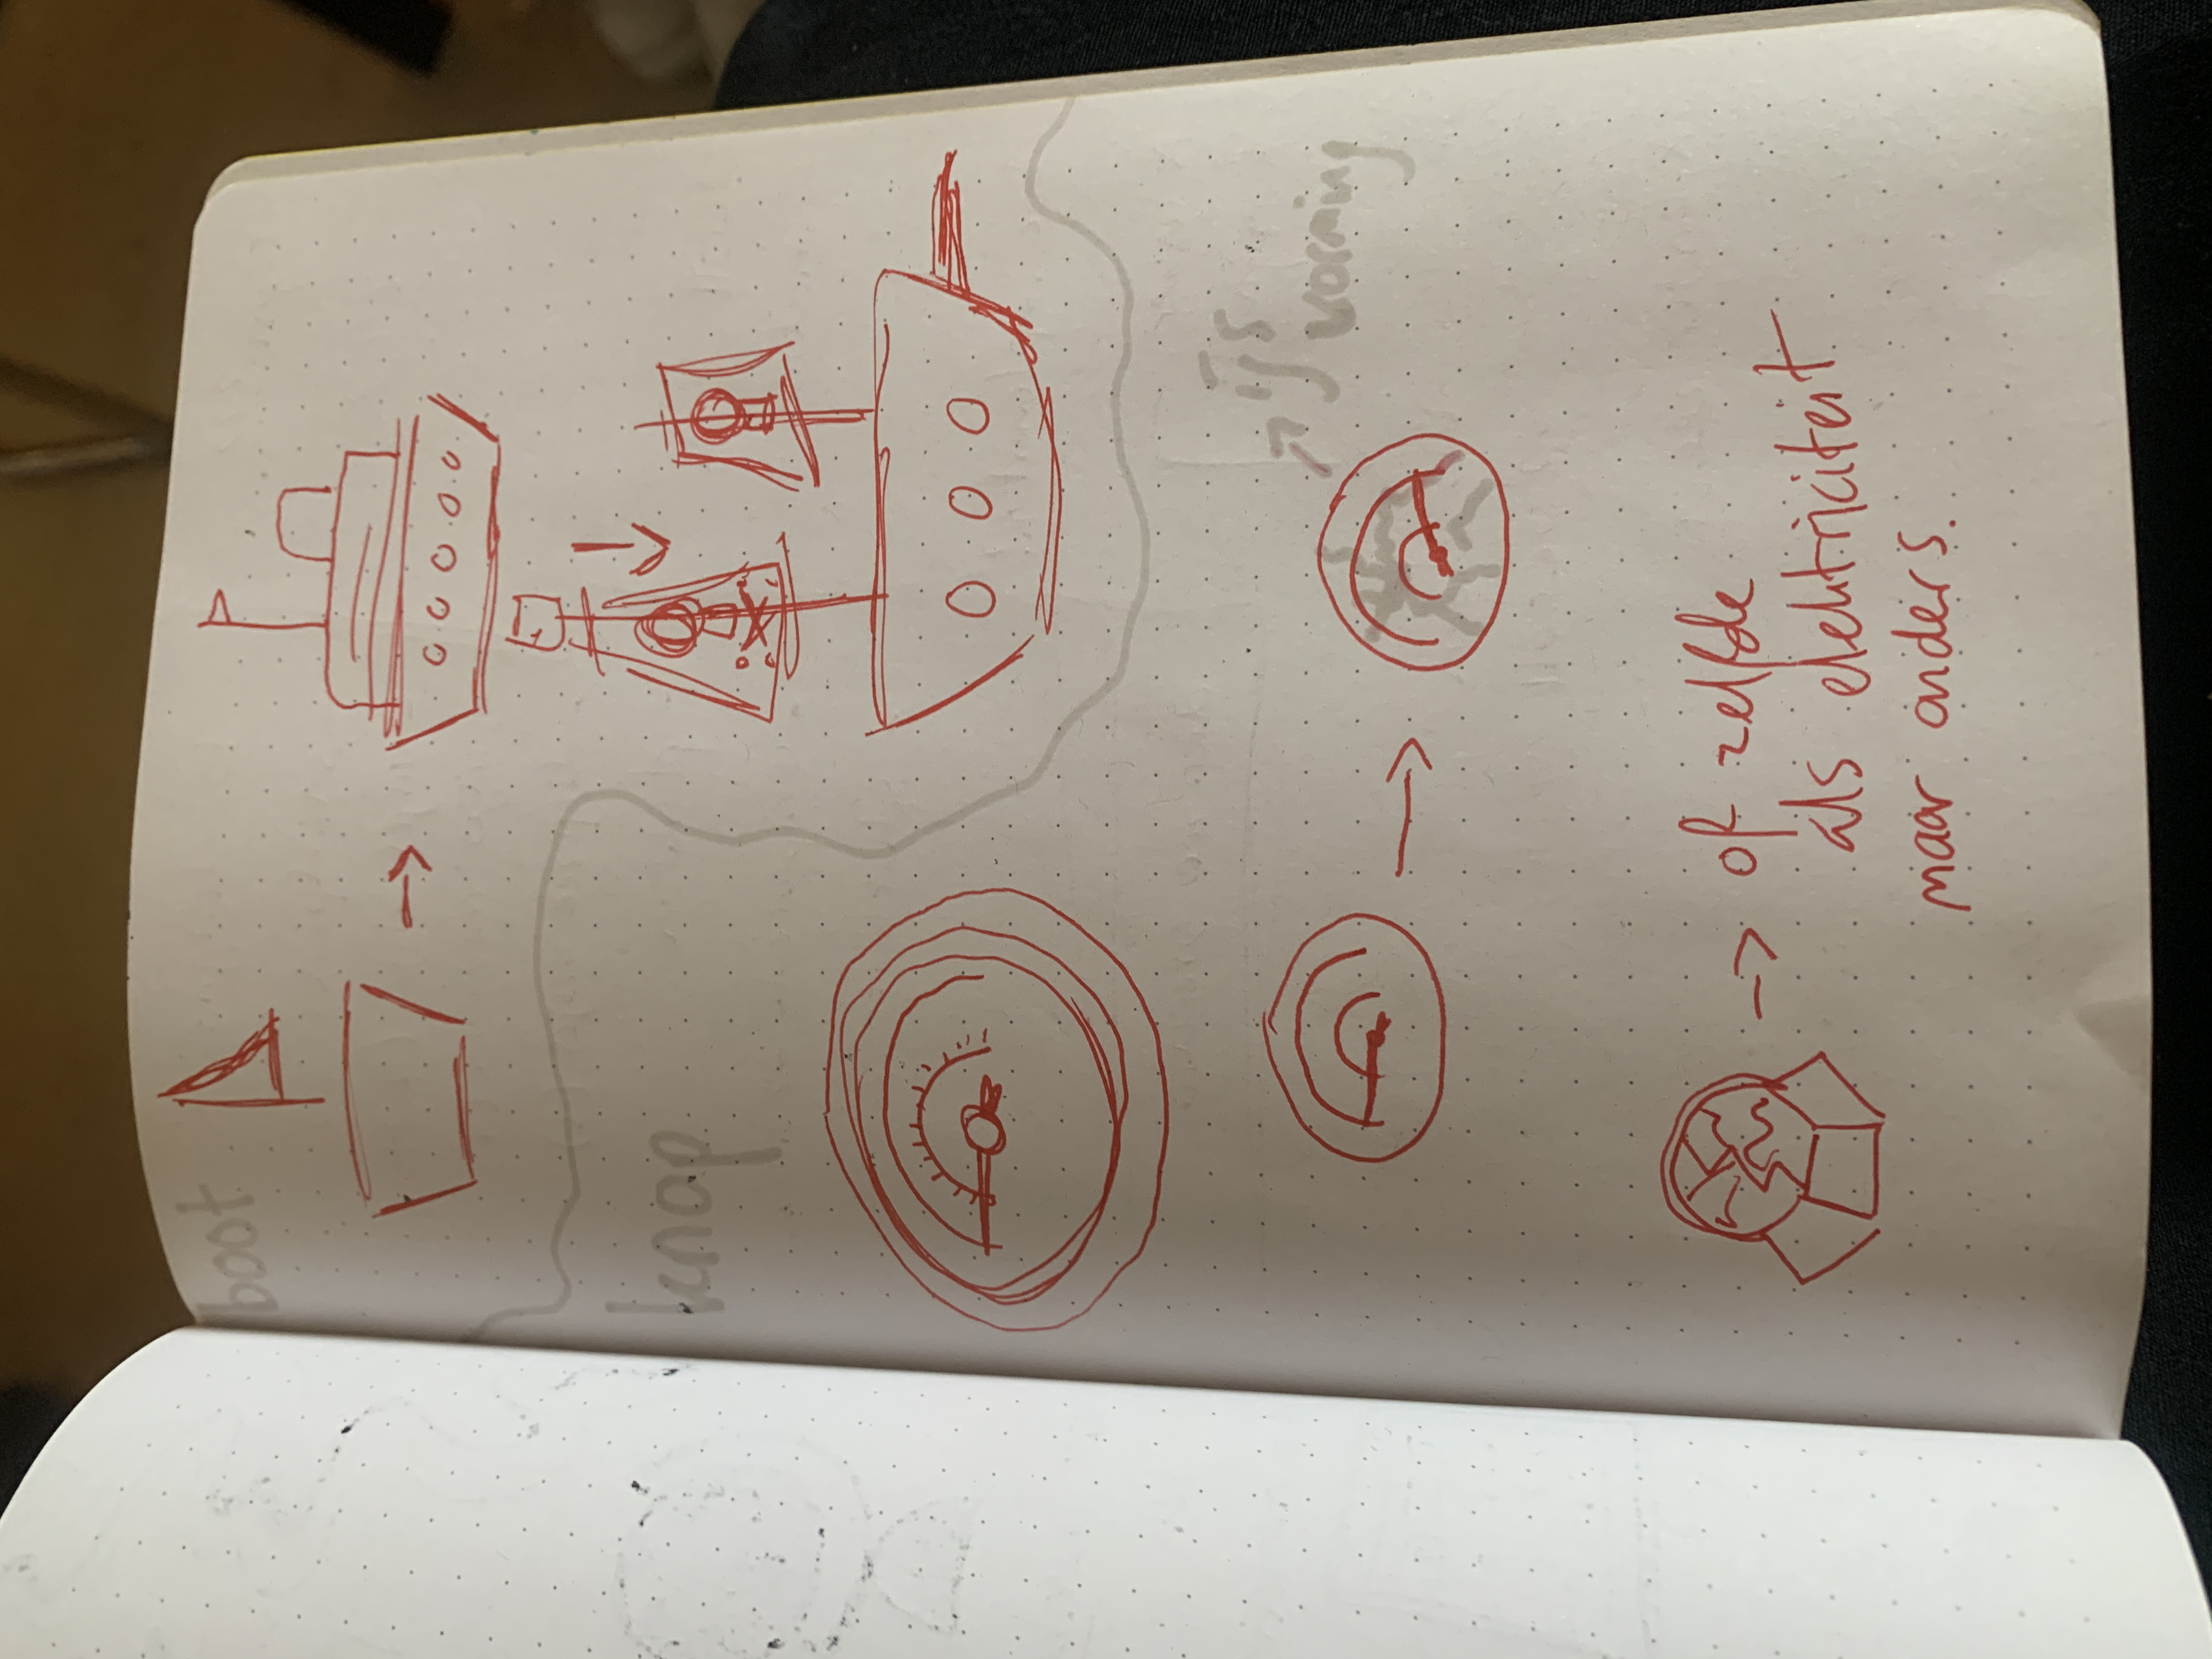 boot
knop
ijs
vorming
of zelfde
als elektriciteit
maar anders.